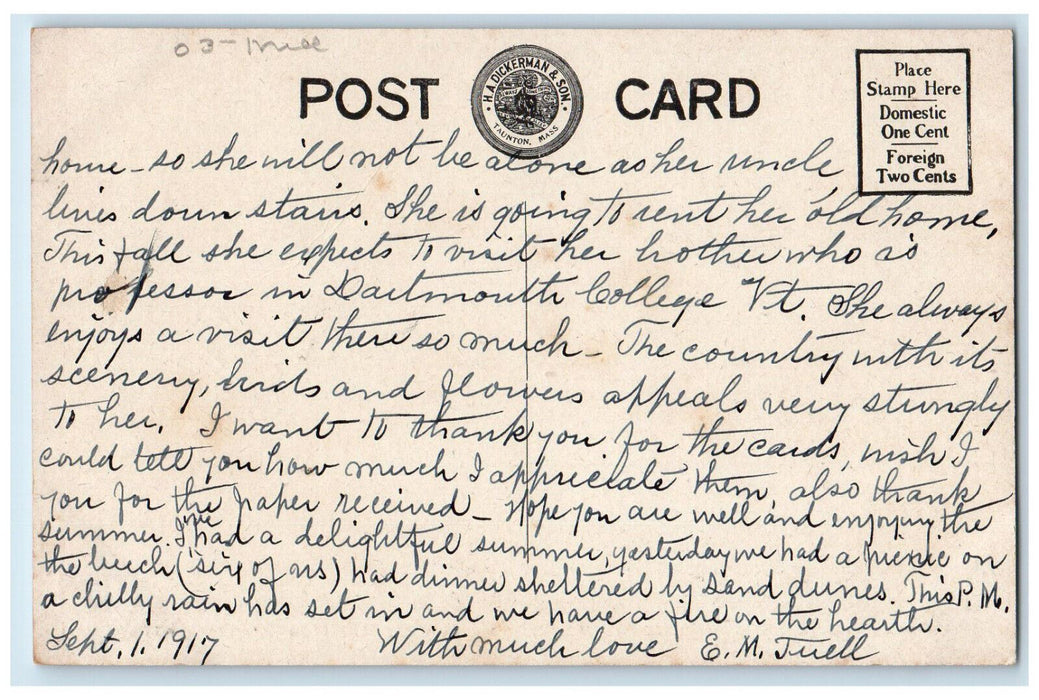 03- Mill
POST CARD
H.A. DICKERMAN & SON.
TAUNTON, MASS
Place
Stamp Here
Domestic
One Cent
Foreign
Two Cents
home - so she will not be alone as her uncle
lives down stairs. She is going to rent her old home,
This fall she expects to visit her brother who is
professor in Dartmouth College Vt. She always
enjoys a visit there so much - The country with its
scenery, birds and flowers appeals very strongly
to her. I want to thank you for the cards, wish I
could tell you how much I appreciate them, also thank
you for the paper received - Hope you are well and enjoying the
summer. I've had a delightful summer, yesterday we had a picnic on
the beach (six of us) had dinner sheltered by sand dunes. This P.M.
a chilly rain has set in and we have a fire on the hearth.
Sept. 1. 1917 With much love E. M. Tuell